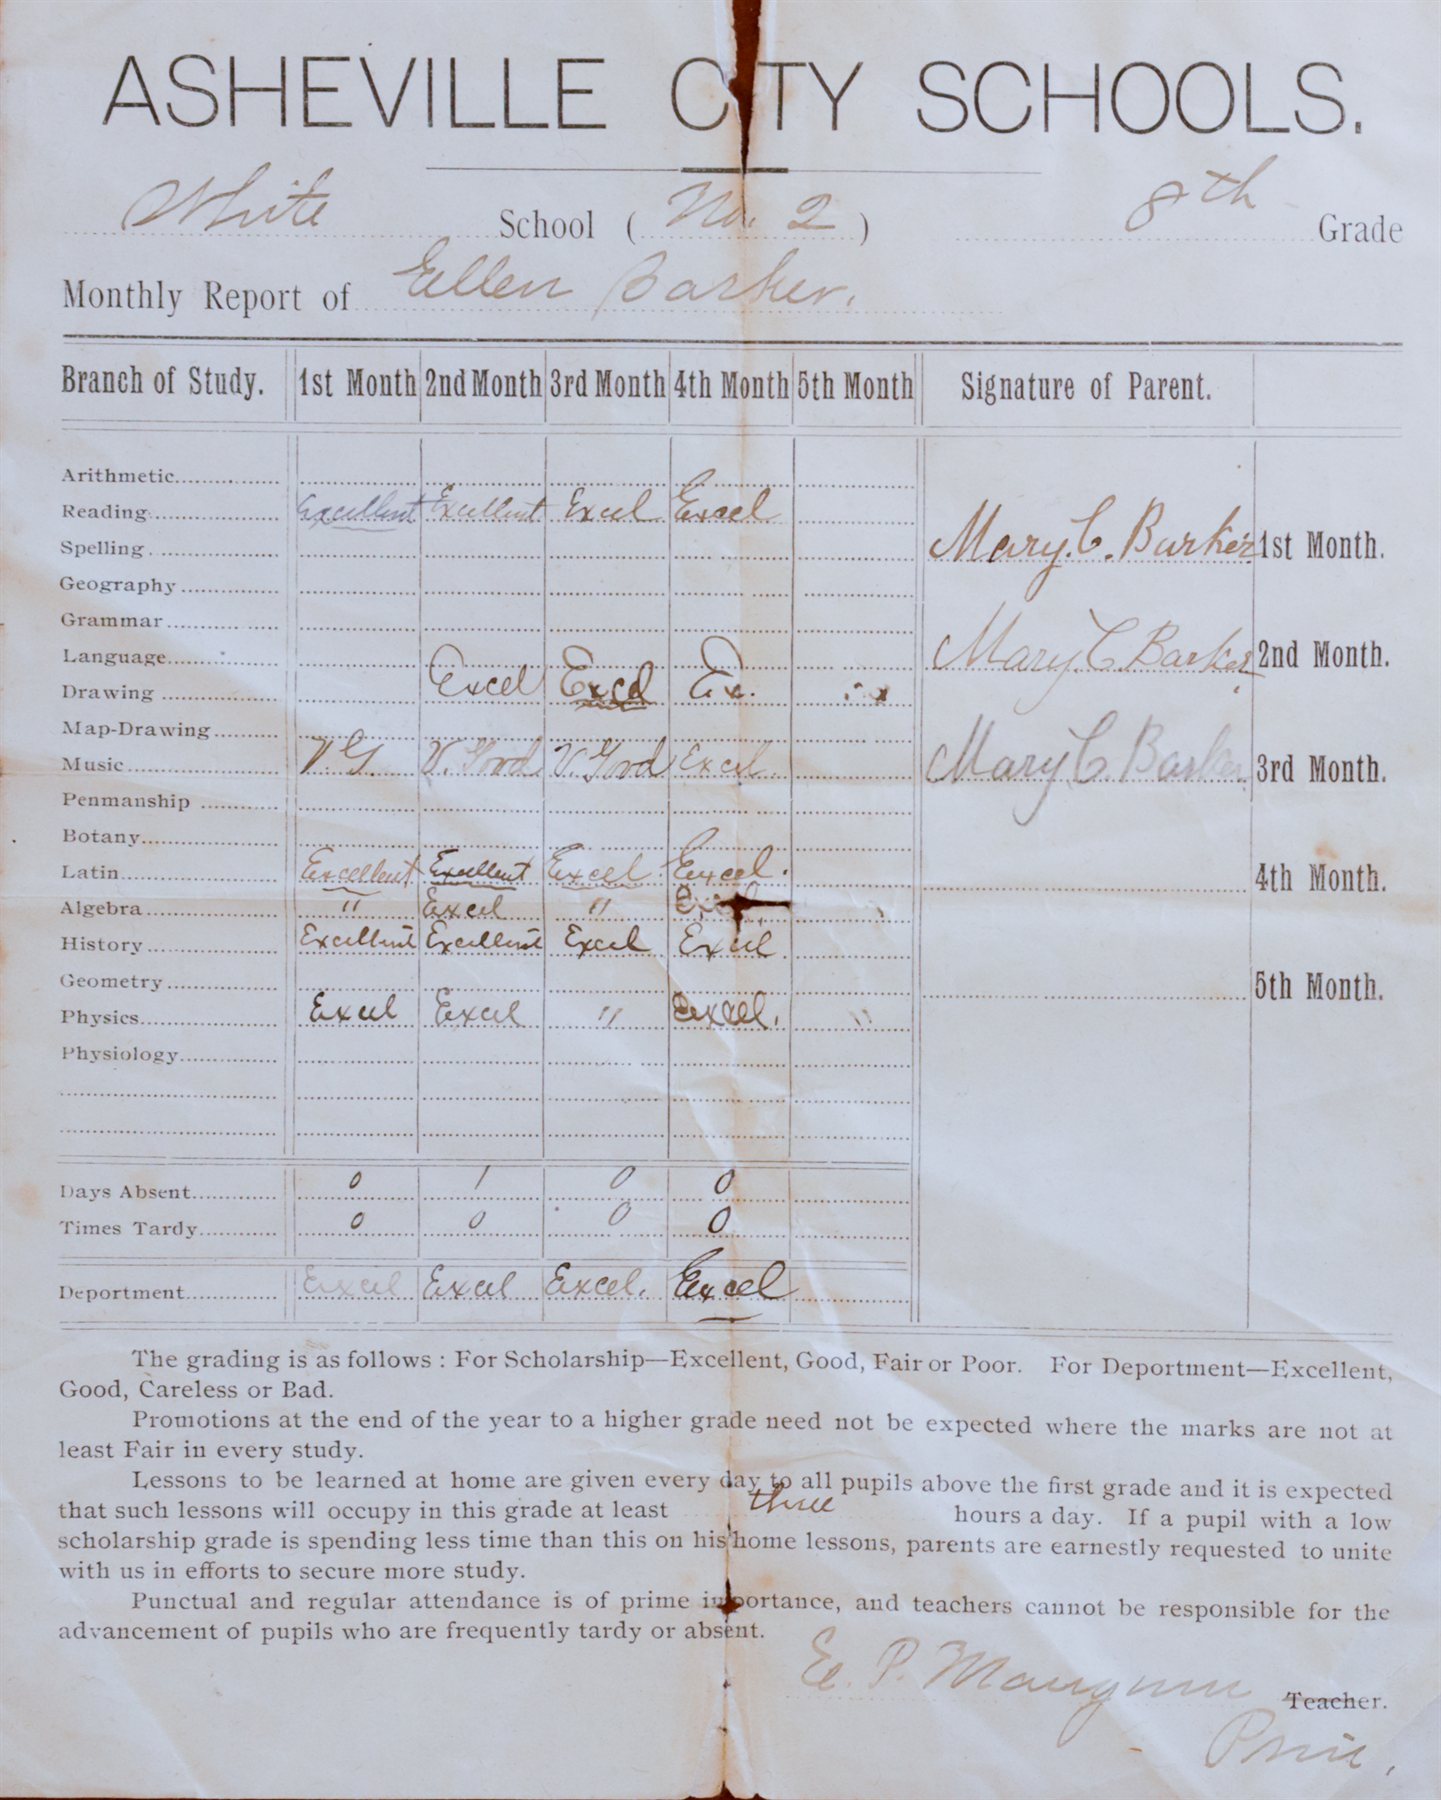 ASHEVILLE CITY SCHOOLS.
White School ( No. 2 ) 8th Grade
Monthly Report of Ellen Barker.
Branch of Study. 1st Month 2nd Month 3rd Month 4th Month 5th Month Signature of Parent.
Arithmetic
Reading Excellent Excellent Excel Excel
Spelling Mary. C. Barker 1st Month.
Geography
Grammar
Language Mary C. Barker 2nd Month.
Drawing Excel Excel Ex.
Map-Drawing
Music V.G. V. Good V. Good Excel Mary C. Barker 3rd Month.
Penmanship
Botany
Latin Excellent Excellent Excel Excel. 4th Month.
Algebra " Excel " Excel.
History Excellent Excellent Excel Excel
Geometry 5th Month.
Physics Excel Excel " Excel. "
Physiology
Days Absent 0 1 0 0
Times Tardy 0 0 0 0
Deportment Excel Excel Excel. Excel
The grading is as follows : For Scholarship—Excellent, Good, Fair or Poor. For Deportment—Excellent,
Good, Careless or Bad.
Promotions at the end of the year to a higher grade need not be expected where the marks are not at
least Fair in every study.
Lessons to be learned at home are given every day to all pupils above the first grade and it is expected
that such lessons will occupy in this grade at least three hours a day. If a pupil with a low
scholarship grade is spending less time than this on his home lessons, parents are earnestly requested to unite
with us in efforts to secure more study.
Punctual and regular attendance is of prime importance, and teachers cannot be responsible for the
advancement of pupils who are frequently tardy or absent.
E. P. Mangum Teacher.
Prin.